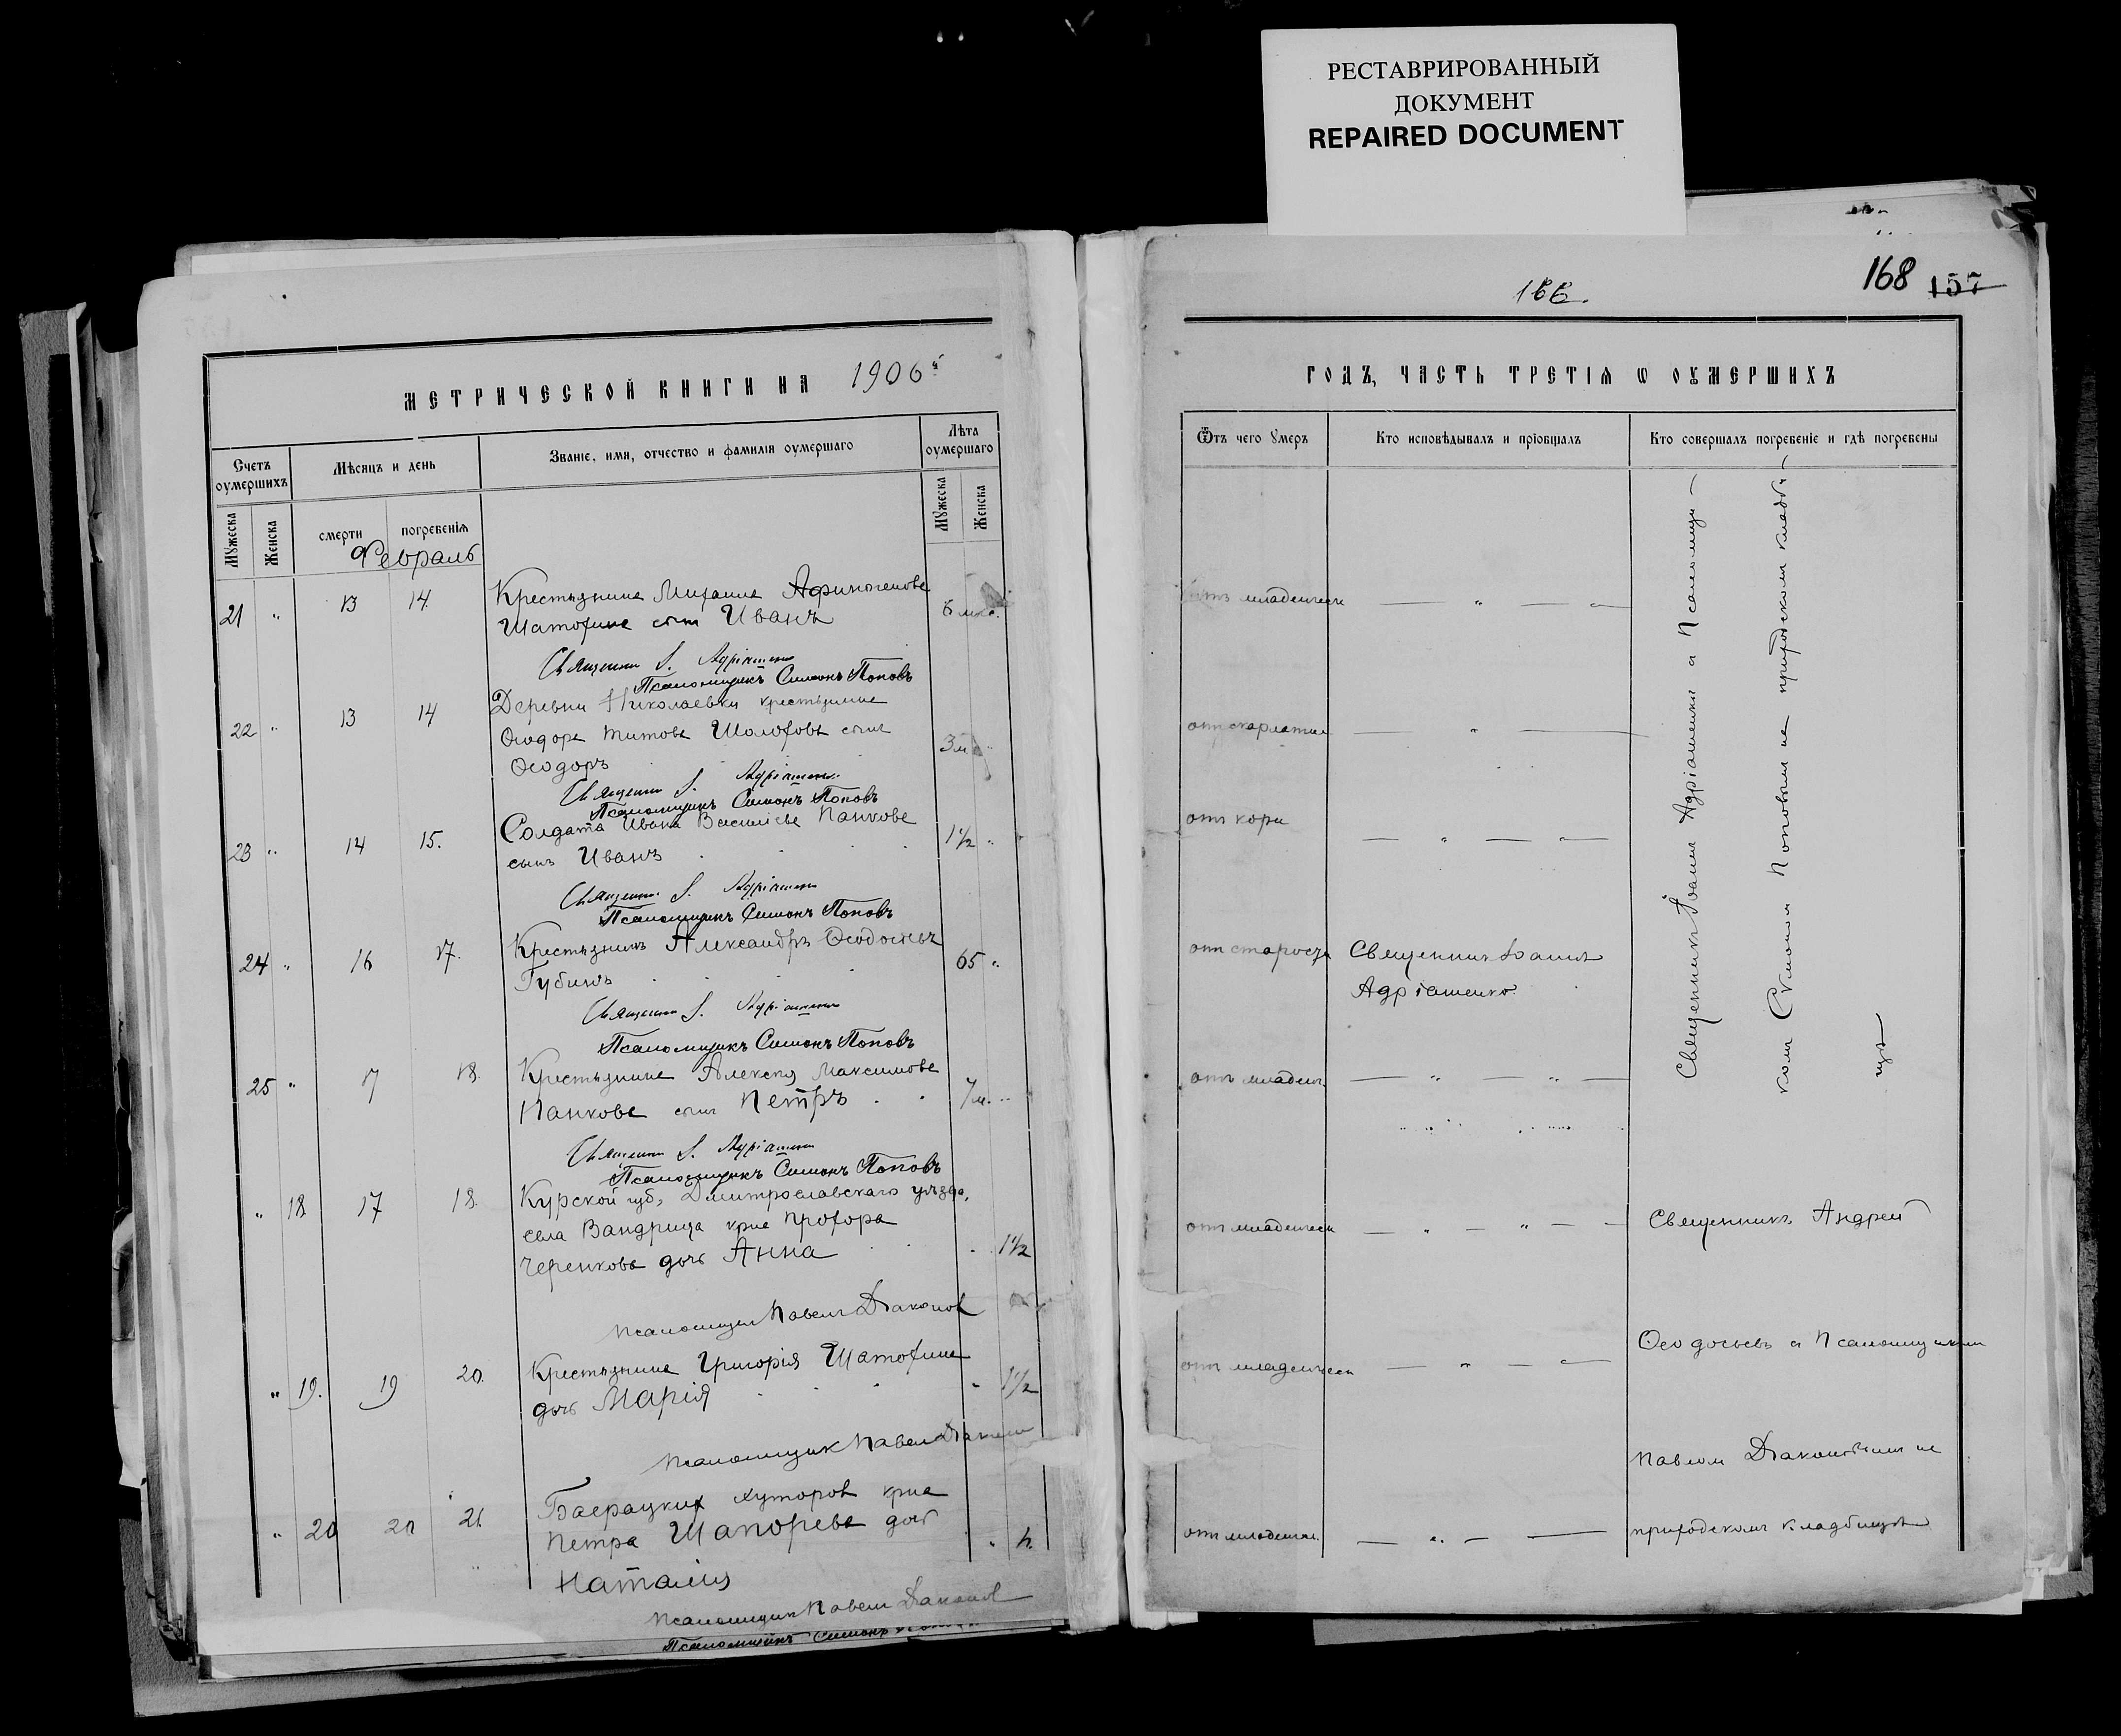 РЕСТАВРИРОВАННЫЙ
ДОКУМЕНТ
REPAIRED DOCUMENT
168 157
166.
МЕТРИЧЕСКОЙ КНИГИ НА 1906й
Счетъ оумершихъ
Мѣсяцъ и день
Званіе, имя, отчество и фамилія оумершаго
Лѣта оумершаго
Мужеска
Женска
смерти
погребенія
Мужеска
Женска
Февраль
21 " 13 14. Крестьянина Михаила Афиногенова 6 м
Шатохина сынъ Иванъ
Священникъ І. Адріашенко
Псаломщикъ Симонъ Поповъ
22 " 13 14 Деревни Николаевки крестьянина
Ѳеодора Титова Шолохова сынъ 3 м
Ѳеодоръ
Священникъ І. Адріашенко
Псаломщикъ Симонъ Поповъ
23 " 14 15. Солдата Ивана Васильева Панкова 1½ "
сынъ Иванъ
Священникъ І. Адріашенко
Псаломщикъ Симонъ Поповъ
24 " 16 17. Крестьянинъ Александръ Ѳеодосіевъ 65 "
Губинъ
Священникъ І. Адріашенко
Псаломщикъ Симонъ Поповъ
25 " 17 18. Крестьянина Алексѣя Максимова
Панкова сынъ Петръ 7 м. "
Священникъ І. Адріашенко
Псаломщикъ Симонъ Поповъ
" 18. 17 18. Курской губ, Дмитрославскаго уѣзда,
села крна Прохора
Черенкова дочь Анна " 1½
Псаломщикъ Павелъ Дьяконовъ
" 19. 19 20. Крестьянина Григорія Шатохина
дочь Марія " 1½
Псаломщикъ Павелъ Дьяконовъ
" 20 20 21. Баерацкихъ хуторовъ крна
Петра Шапорева дочь
Наталія
Псаломщикъ Павелъ Дьяконовъ
Псаломщикъ Симонъ
ГОДЪ, ЧАСТЬ ТРЕТІЯ Ѡ ОУМЕРШИХЪ
Ѿтъ чего умеръ
Кто исповѣдывалъ и пріобщалъ
Кто совершалъ погребеніе и гдѣ погребены
отъ младенческ — " — " —
от скарлатин — " —
отъ кори — " — " —
отъ старости Священникъ Іоаннъ
Адріашенко.
отъ младенч. — " — " —
отъ младенческ — " — " — —
отъ младенческ — " — " —
отъ младенческ. — " — —
Священникъ Іоаннъ Адріашенко и Псаломщи—
комъ Симономъ Поповымъ на приходскомъ кладби—
щѣ—
Священникъ Андрей
Ѳеодосьевъ и Псаломщикомъ
Павломъ Дьяконовымъ на
приходскомъ кладбищѣ